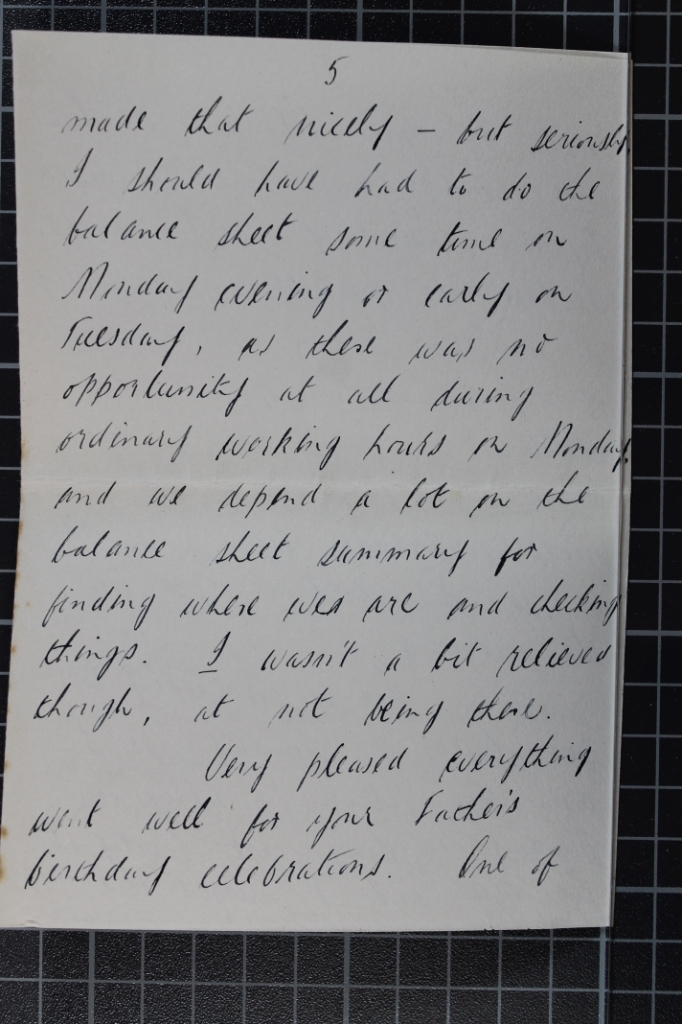 5
made that nicely – but seriously,
I should have had to do the
balance sheet some time on
Monday evening or early on
Tuesday, as there was no
opportunity at all during
ordinary working hours on Monday,
and we depend a lot on the
balance sheet summary for
finding where we are and checking
things. I wasn't a bit relieved
though, at not being there.
Very pleased everything
went well for your Father's
birthday celebrations. One of